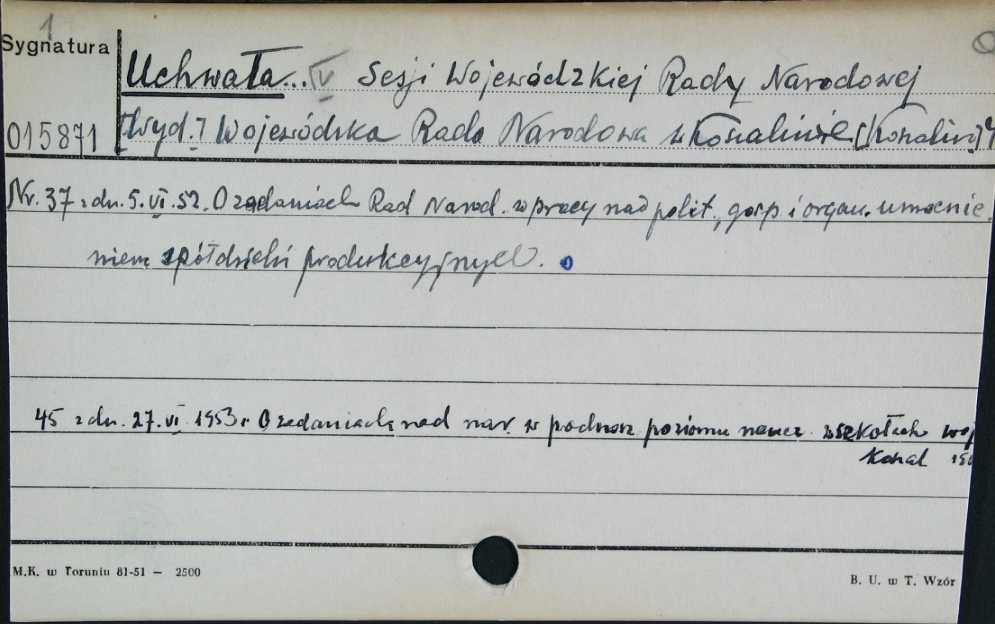 1
Sygnatura
Uchwała... V Sesji Wojewódzkiej Rady Narodowej
015871
[Wyd.] Wojewódzka Rada Narodowa w Koszalinie. [Koszalin]
Nr. 37 z dn. 5.VI.52. O zadaniach Rad Narod. w pracy nad polit., gosp. i organ. umocnie
niem spółdzielni produkcyjnych.
45 z dn. 27.VI 1953 r. O zadaniach rad nar. w podnosz. poziomu naucz. w szkołach woj
Koszal
M.K. w Toruniu 81-51 — 2500
B. U. w T. Wzór